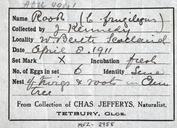 Name Rook (C. frugilegus)
Collected by J Kennedy
Locality Scotland
Date April 8. 1911
Set Mark X Incubation fresh
No. of Eggs in set 6 Identity Sure
Nest of twigs & roots in Elm
tree
From Collection of CHAS. JEFFERYS, Naturalist,
TETBURY, GLOS.